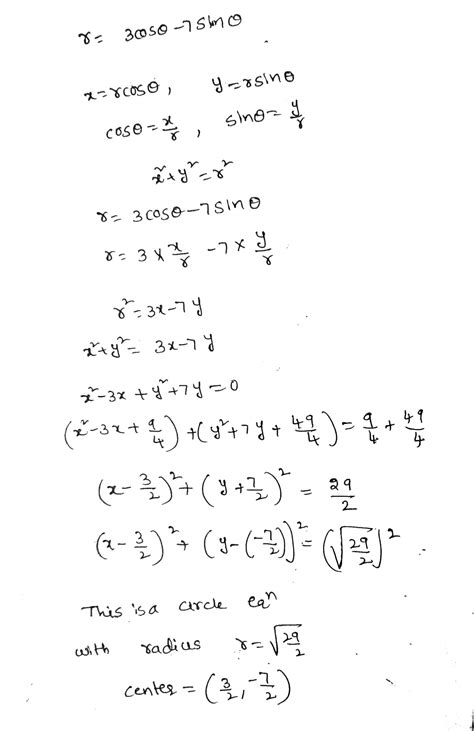 r = 3cosθ - 7sinθ
x = rcosθ, y = rsinθ
cosθ = x/r, sinθ = y/r
x² + y² = r²
r = 3cosθ - 7sinθ
r = 3 × x/r - 7 × y/r
r² = 3x - 7y
x² + y² = 3x - 7y
x² - 3x + y² + 7y = 0
(x² - 3x + 9/4) + (y² + 7y + 49/4) = 9/4 + 49/4
(x - 3/2)² + (y + 7/2)² = 29/2
(x - 3/2)² + (y - (-7/2))² = (√29/2)²
This is a circle eqn
with radius r = √29/2
center = (3/2, -7/2)